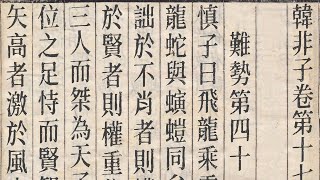 韓非子卷第十七
難勢第四十
慎子曰飛龍乘
龍蛇與螾螘同
詘於不肖者則
於賢者則權重
三人而桀為天子
位之足恃而賢
矢高者激於風